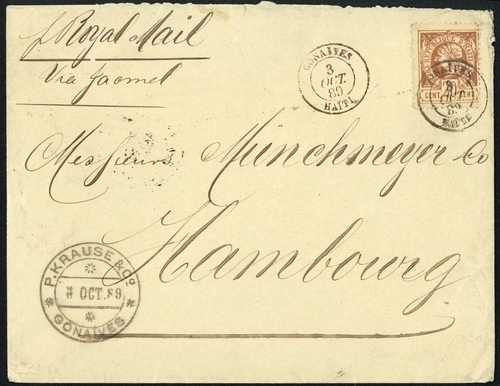 p Royal Mail
Via Jacmel
GONAIVES
3
OCT.
89
HAITI
REPUBLIQUE D'HAITI
CENT. CENT.
GONAIVES
3
OCT.
89
HAITI
Messieurs Münchmeyer Co
Hambourg
P. KRAUSE & Co.
3 OCT. 89
GONAÏVES